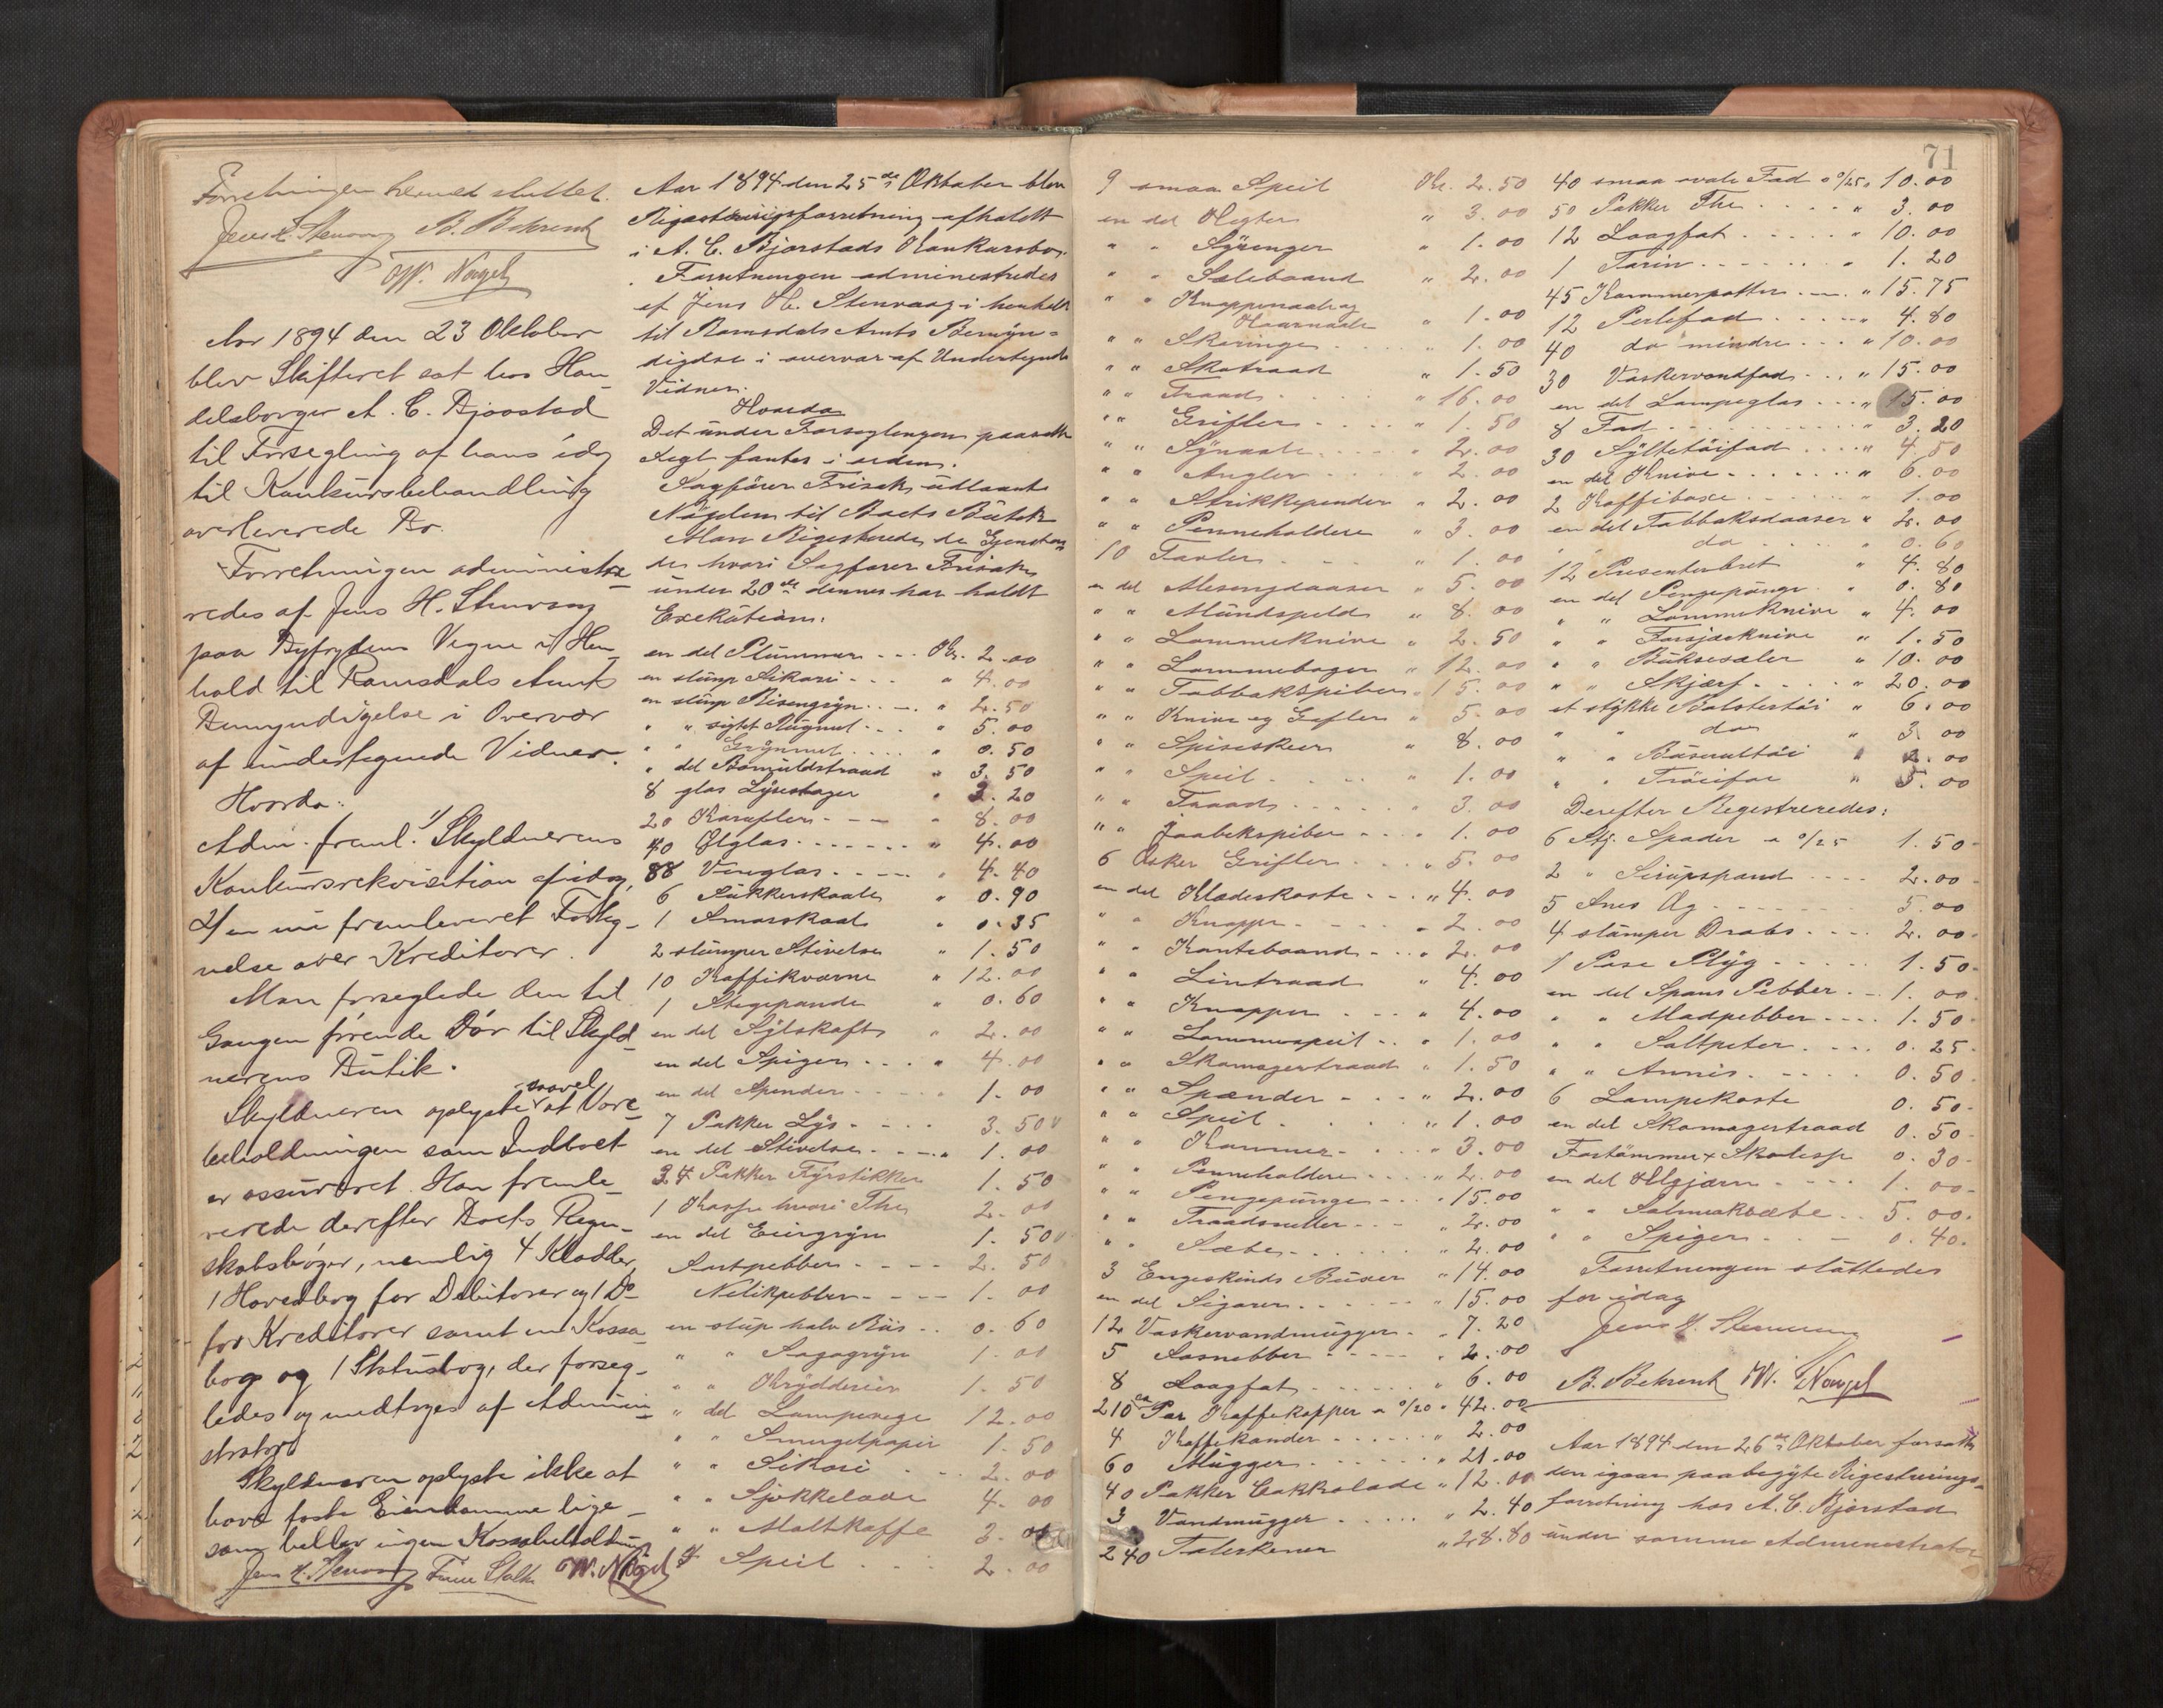 Forretningen hermed sluttet.
Jens H. Stenvaag B. Behrent
W. Nagel
Aar 1894 den 23 Oktober
blev Skifteret sat hos Han-
delsborger A. C. Bjørstad
til Forsegling af hans idag
til Konkursbehandling
overleverede Bo.
Forretningen administre-
redes af Jens H. Stenvaag
paa Byfogdens Vegne i Hen-
hold til Romsdals Amts
Bemyndigelse i Overvær
af undertegnede Vidner.
Hvorda:
Adm. freml. 1/ Skyldnerens
Konkursrekvisition af idag,
2/ en ny fremleveret Forteg-
nelse over Kreditorer.
Man forseglede den til
Gangen førende Dør til Skyld-
nerens Butik.
Skyldneren oplyste saavel at Vare-
beholdningen som Indboet
er assureret. Han fremle-
verede derefter Boets Regn-
skabsbøger, nemlig 4 Kladder,
1 Hovedbog for Debitorer og 1 Do
for Kreditorer samt en Kassa-
bog og 1 Statusbog, der forseg-
ledes og medtoges af Admini-
strator
Skyldneren oplyste ikke at
have faste Eiendomme lige-
som heller ingen Kassabeholdning
Jens H. Stenvaag W. Nagel
Aar 1894 den 25de Oktober blev
Rigestreringsforretning afholdt
i A. C. Bjørstads Konkursbo.
Forretningen administredes
af Jens H. Stenvaag i henhold
til Romsdals Amts Bemyn-
digelse i overvær af Undertegnede
Vidner.
Hvorda
Det under Forseglingen paasatte
Segl fantes i orden.
Sagfører Frisak udlaante
Nøglem til Boets Butik
Man Rigestrerede de Gjenstan-
der hvori Sagfører Frisak
under 20de dennes har holdt
Exekution:
en del Plummer - - - Kr. 2.00
en slump Sikori - - - " 4.00
en slump Risengryn - - " 2.50
" " sigtet Rugmel - - " 5.00
" " Grynmel - - - - " 0.50
" del Bomuldstraad " 3.50
8 glas Lysestager " 3.20
20 Karafler - - - " 8.00
40 Ølglas - - - - - - " 4.00
88 Vinglas - - - - - " 4.40
6 Sukkerskaale " 0.90
1 Smørskaal " 0.35
2 slumper Stivelse " 1.50
10 Kaffikværne " 12.00
1 Stegepande " 0.60
en del Sylskaft " 2.00
en del Spiger - - - " 4.00
en del Spender - - - - - 1.00
7 Pakker Lys - - - - 3.50
en del Stivelse - - - - " 1.00
34 Pakker Fyrstikker 1.50
1 Kasse hvori The 2.00
en del Eirgryn 1.50
Sortpebber - - - - 2.50
Nelikpebber - - - - 1.00
en slup halv Riis - - 0.60
" " Sagogryn 1.00
" " Krydderier 1.50
" del Lampevæge 12.00
" " Smergelpapir 1.50
" " Sikori - - - 2.00
" " Sjokkelade 4.00
" " Maltkaffe 3.00
4 Speil - - - 2.00
71
9 smaa Speil Kr. 2.50
en del Hegter " 3.00
" " Syrenger " 1.00
" " Selebaand " 2.00
" " Knappenaale og
Haarnaale " 1.00
" " Skoringe - - - " 1.00
" " Skotraad " 1.50
" " Traad - - - - " 16.00
" " Grifler - - - - " 1.50
" " Synaale - - - " 2.00
" " Angler - - - " 2.00
" " Strikkepender " 2.00
" " Penneholdere " 3.00
10 Tavler - - - - " 1.00
en del Mesengdaaser " 5.00
" " Mundspeld " 8.00
" " Lommeknive " 2.50
" " Lommebøger " 12.00
" " Tobbakspiber " 15.00
" " Knive og Gafler " 5.00
" " Spiseskeer " 8.00
" " Speil - - - - " 1.00
" " Traad - - - - - - " 3.00
" " Jaabekspiber - - - " 1.00
6 Æsker Grifler - - - - " 5.00
en del Klædeskoste - - - " 4.00
" " Knapper - - - - - " 2.00
" " Kantebaand - - - " 2.00
" " Lintraad " 4.00
" " Knapper - - - " 4.00
" " Lommespeil - - " 1.00
" " Skomagertraad " 1.50
" " Spænder - - - " 2.00
" " Speil - - - - - " 1.00
" " Kammer - - - - " 3.00
" " Penneholdere - - - - " 2.00
" " Pengepunge - - - " 15.00
" " Traadsneller - - - " 2.00
" " Sæbe - - - - - - " 2.00
3 Engeskinds Buxer " 14.00
en del Sigarer - - - - - - " 15.00
12 Vaskervandmugger - " 7.20
5 Sosnebber - - - - - " 2.00
8 Laagfat - - - - - " 6.00
210 Par Kaffekopper a 0/20 " 42.00
4 Kaffekander - - - - - " 2.00
60 Mugger - - - - - - " 21.00
40 Pakker Cokkolade " 12.00
3 Vandmugger - - - - - " 2.40
240 Talerkener " 28.80
40 smaa ovale Fad a 0/25 " 10.00
50 Pakker The - - - - " 3.00
12 Laagfat - - - - - " 10.00
1 Tærin - - - - - - - " 1.20
45 Kammerpotter - - - " 15.75
12 Perlefad - - - - - " 4.80
40 do mindre - - - " 10.00
30 Vaskervandfad - - - " 15.00
en del Lampeglas - - - " 15.00
8 Fad - - - - - - - - - " 3.20
30 Syltetøifad - - - - " 4.50
en del Knive - - - - - - " 6.00
2 Kaffiboxe - - - - - - " 1.00
en del Tobbaksdaaser " 2.00
" " do - - - - " 0.60
12 Presenterbret " 4.80
en del Pengepunge " 0.80
" " Lommeknive " 4.00
" " Forsjæcknive " 1.50
" " Buksesæler " 10.00
" " Skjærf - - - - " 20.00
et stykke Bolstertøi " 6.00
" " do " 3.00
" " Buserultøi " 2.00
" " Trøiefor " 5.00
Derefter Registreredes:
6 Stj. Spader a 0/25 1.50
2 " Sirupspand - - - - 2.00
5 Snes Æg - - - - - - 5.00
4 stumper Drabs - - - - 2.00
1 Pose Plyg - - - - - 1.50
en del Spans Pebber - - 1.00
" " Madpebber - - - - 1.50
" " Saltpeter - - - - 0.25
" " Annis - - - - 0.50
6 Lampekoste 0.50
en del Skomagertraad 0.50
Fortømmer + Skolisp 0.30
en del Ølgjærn - - - - 1.00
" " Salmeaksæbe - - 5.00
" " Spiger - - - 0.40
Forretningen sluttedes
for idag
Jens H. Stenvaag
B. Behrent W. Nagel
Aar 1894 den 26de Oktober forsatte
den igaar paabegyte Rigestrerings-
forretning hos A. C. Bjørstad
under samme Administrator